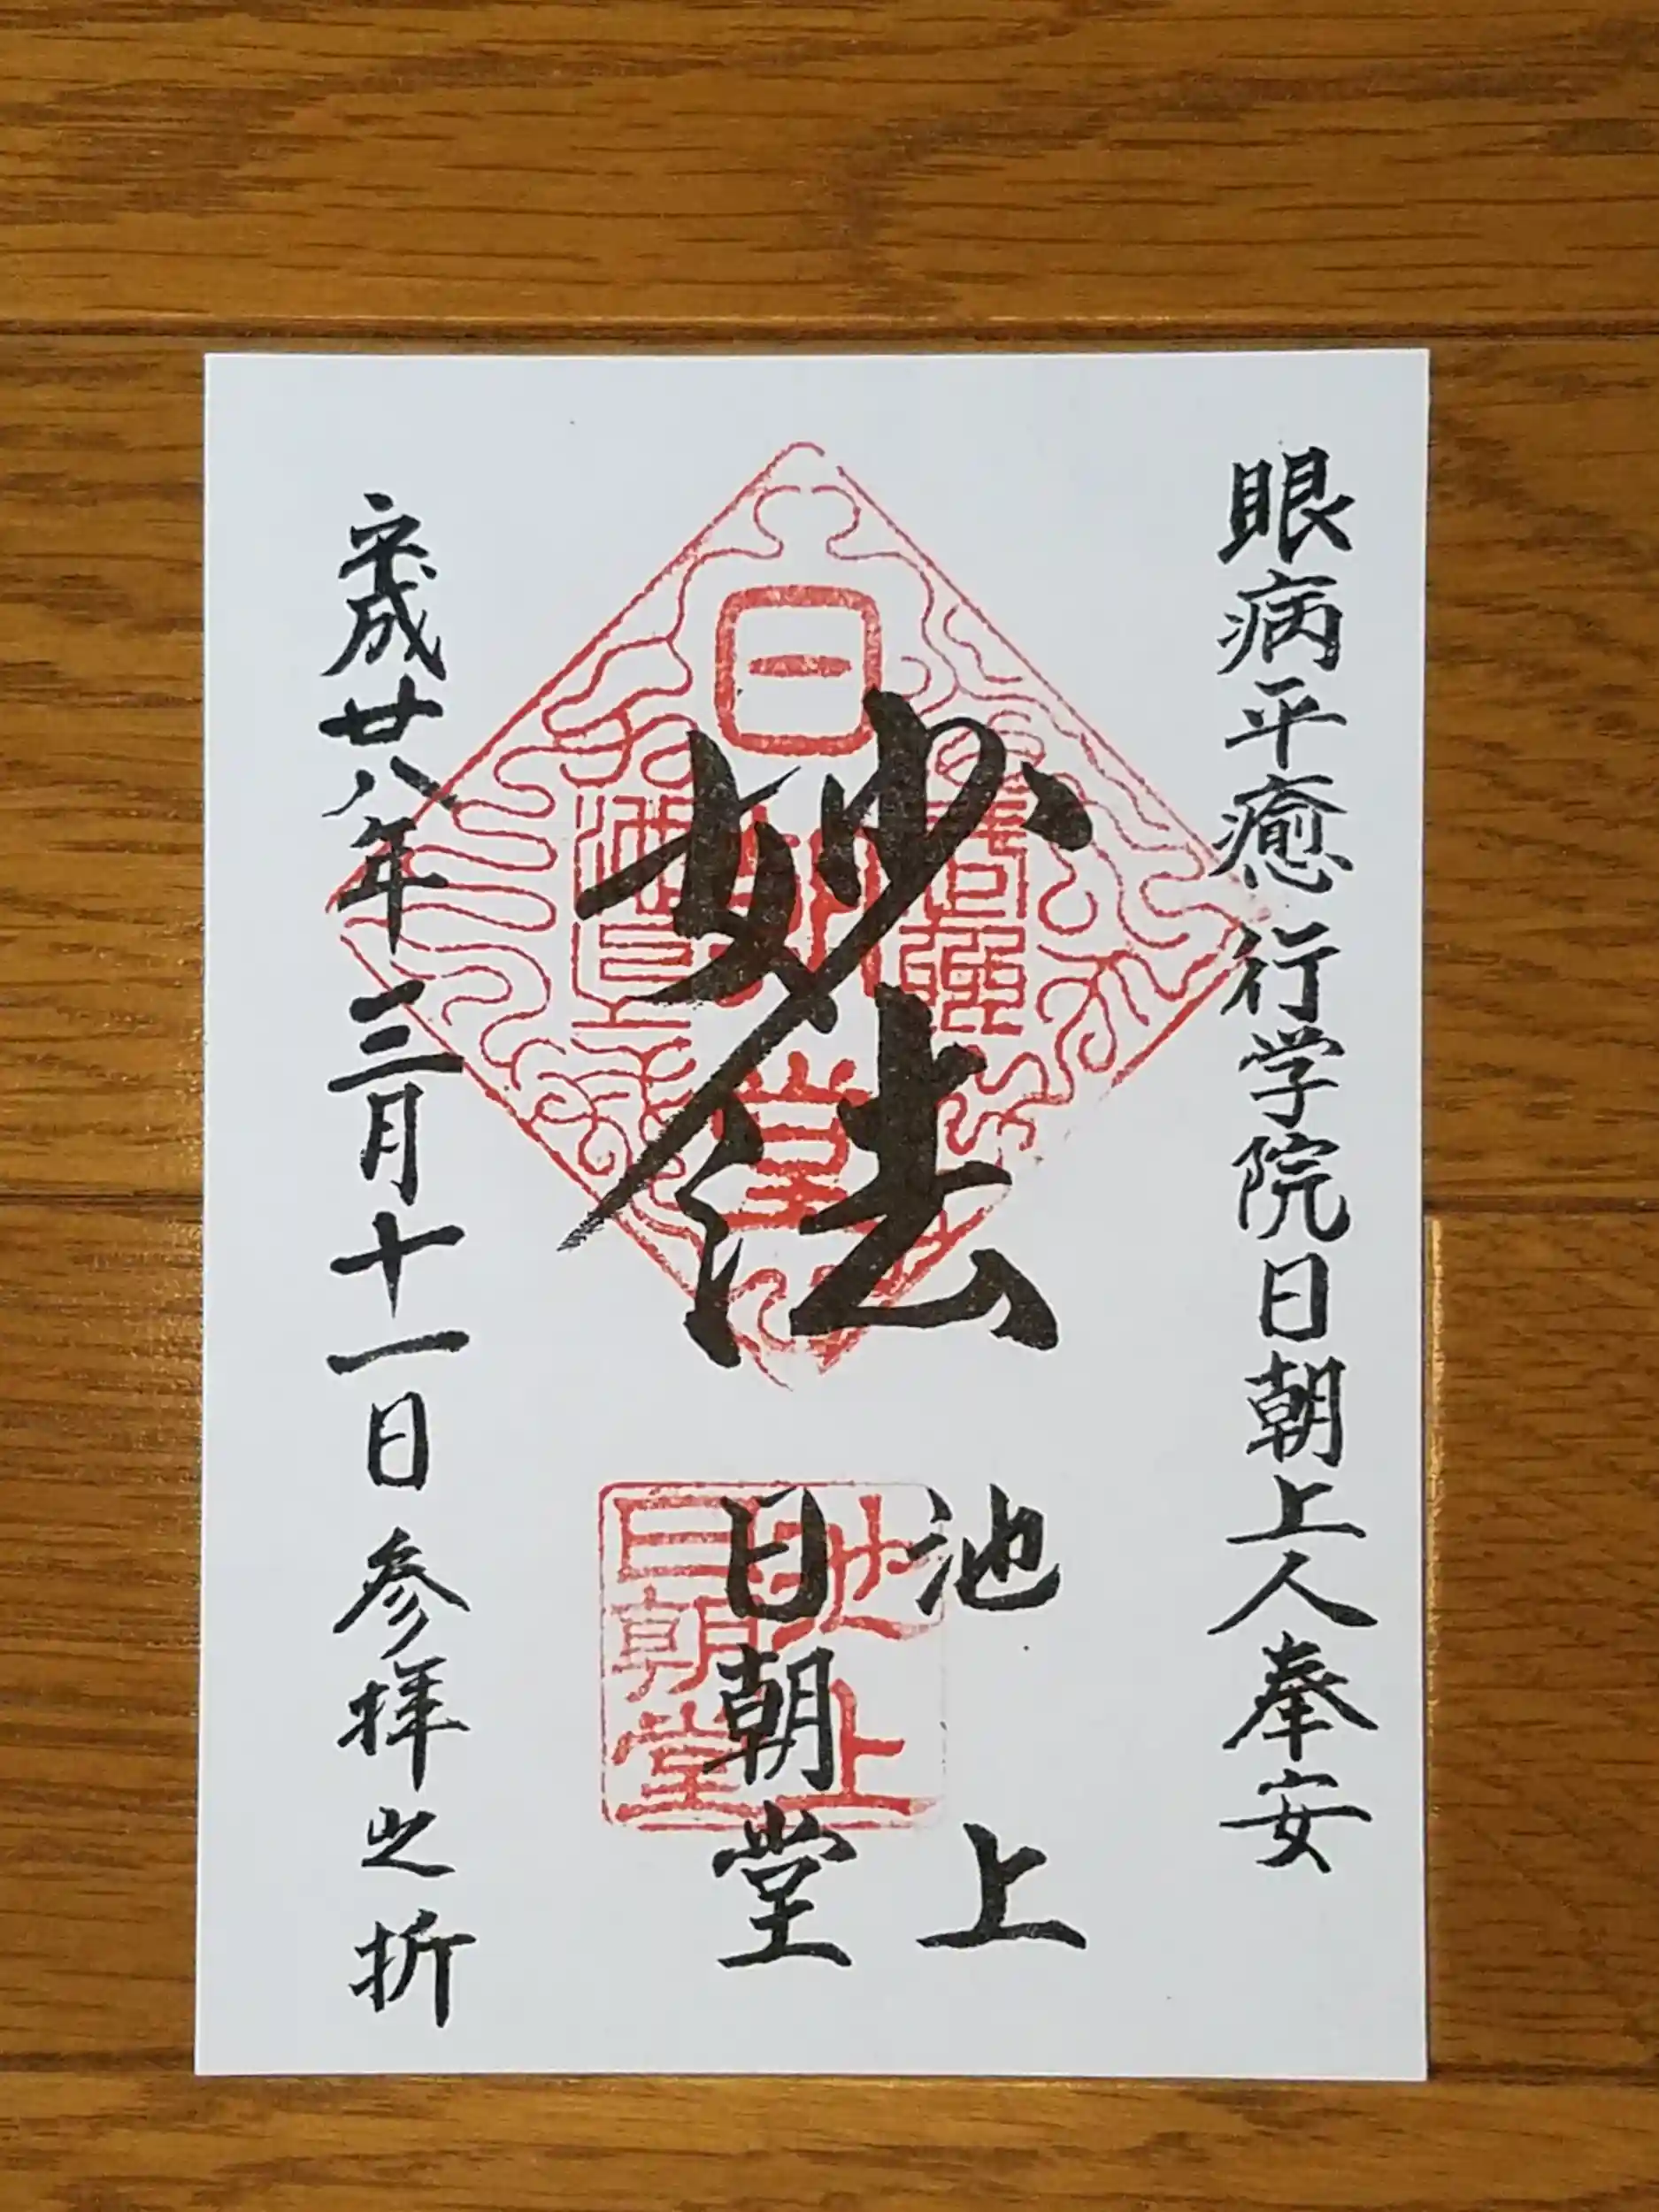 眼病平癒行学院日朝上人奉安
妙法
池上
日朝堂
平成廿八年三月十一日参拝之折
日朝堂
池上
日朝堂